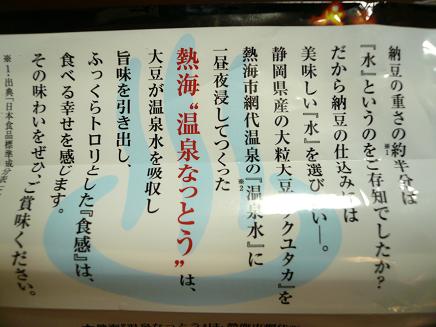 納豆の重さの約半分は
※1
『水』というのをご存知でしたか?
だから納豆の仕込みには
美味しい『水』を選びたい―。
静岡県産の大粒大豆『フクユタカ』を
熱海市網代温泉の『温泉水』に
※2
一昼夜浸してつくった
熱海“温泉なっとう”は、
大豆が温泉水を吸収し
旨味を引き出し、
ふっくらトロリとした『食感』は、
食べる幸せを感じます。
その味わいをぜひご賞味ください。
※1:出典「日本食品標準成分表